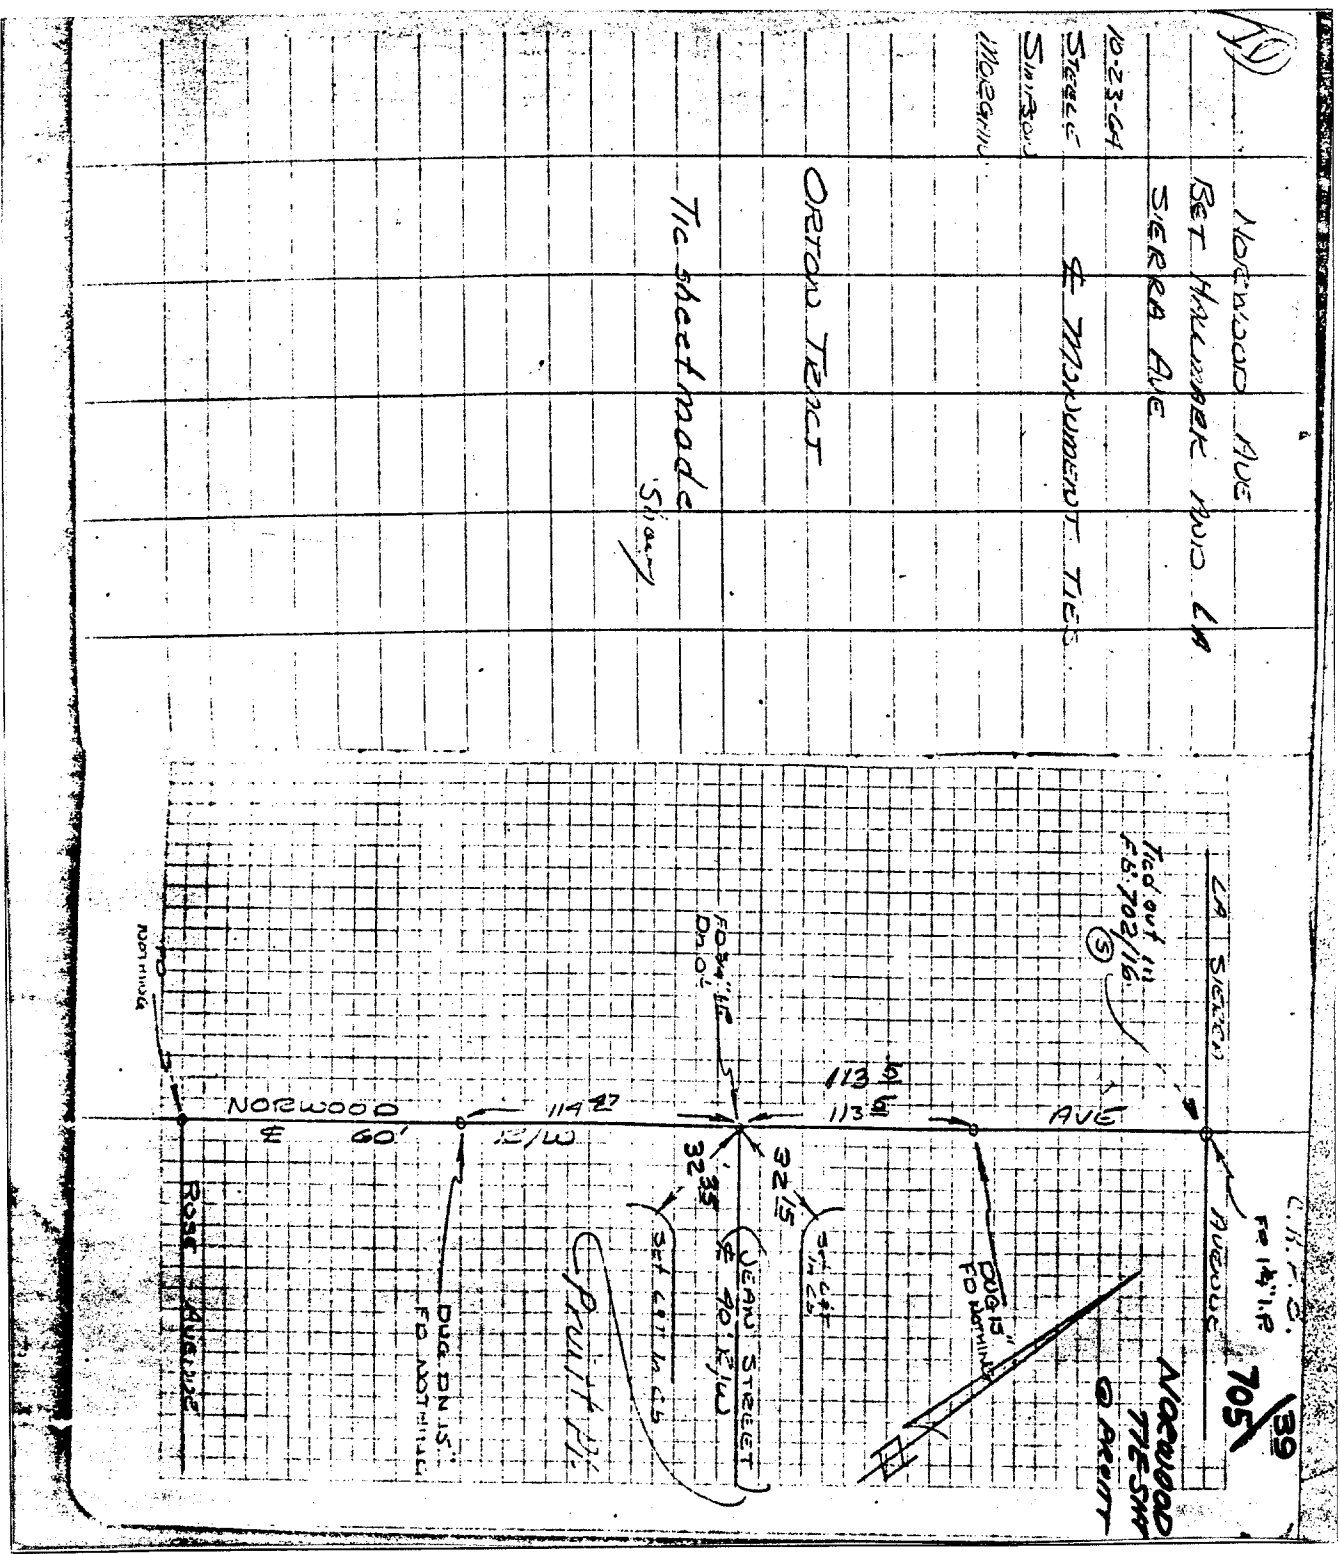 NORWOOD AVE
BET HALLMARK AND LA
SIERRA AVE
10-23-64
STEELE
SIMPSON
MORGAN
℄ MONUMENT TIES
ORTON TRACT
Tie sheet made
C.K.F.B.
705/39
NORWOOD
TIE SHT
@ PRUITT
FD 1¼" I.P.
LA SIERRA AVENUE
Tied out in
FB 702/16
3
AVE
DUG 15"
FD NOTHING
113
113
32.15
SET C&T
IN CB
FD 3/4" I.P.
DN 0.
(JEAN STREET)
℄ 40' R/W
32.35
SET C&T IN CB
Pruitt Pl.
114.27
NORWOOD
60' R/W
DUG DN 15"
FD NOTHING
FD
NOTHING
ROSE AVENUE